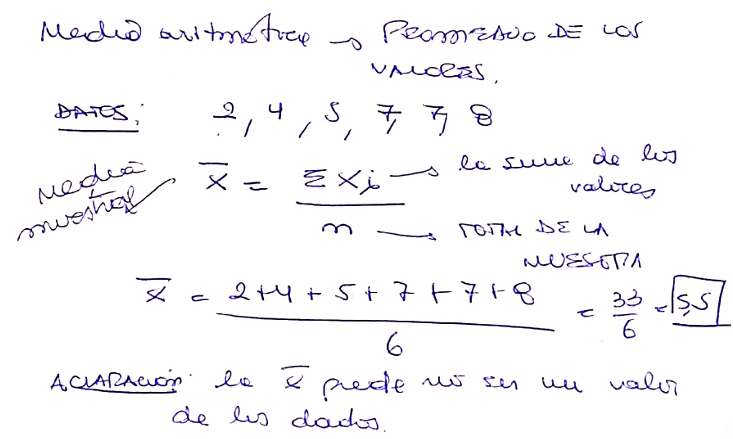 Media aritmética → PROMEDIO DE LOS
VALORES.
DATOS: 2, 4, 5, 7, 7, 8
Media muestral
x̄ = Σxi / n
→ la suma de los valores
→ TOTAL DE LA MUESTRA
x̄ = 2+4+5+7+7+8 / 6 = 33/6 = 5,5
ACLARACIÓN: la x̄ puede no ser un valor
de los dados.